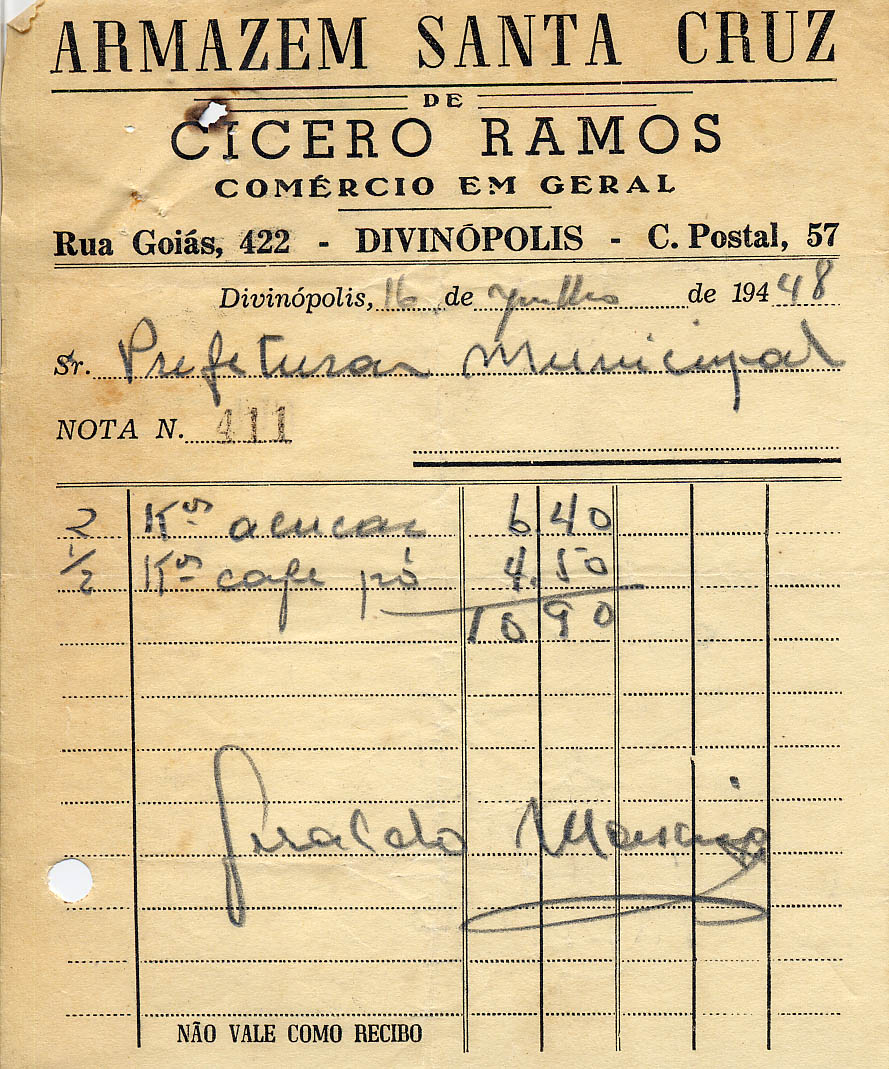 ARMAZEM SANTA CRUZ
DE
CICERO RAMOS
COMÉRCIO EM GERAL
Rua Goiás, 422 - DIVINÓPOLIS - C. Postal, 57
Divinópolis, 16 de Julho de 194 48
Sr. Prefetura Municipal
NOTA N. 411
2 Kos açucar 6.40
1/2 Kos cafe pó 4.50
10 90
Geraldo
NÃO VALE COMO RECIBO